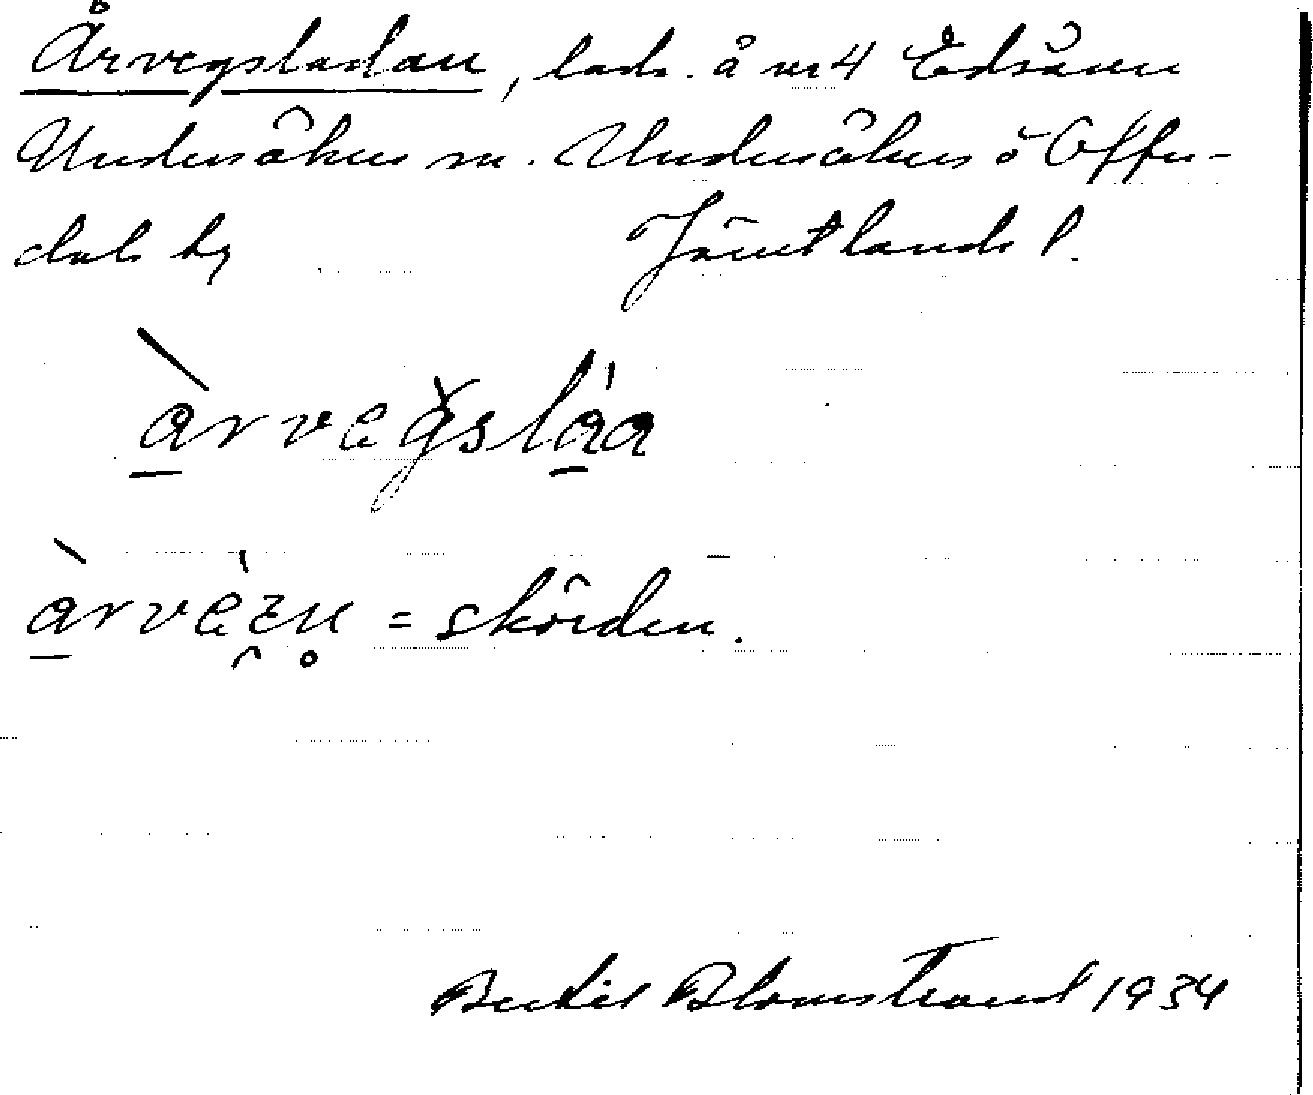 Årvegsladan, lada å nr 4 Edsåsen
Undersåkers sn. Undersåkers o Offer-
dals tg Jämtlands l.
àrvegsláa
àrvèzn̥ = skörden.
Bertil Blomstrand 1934